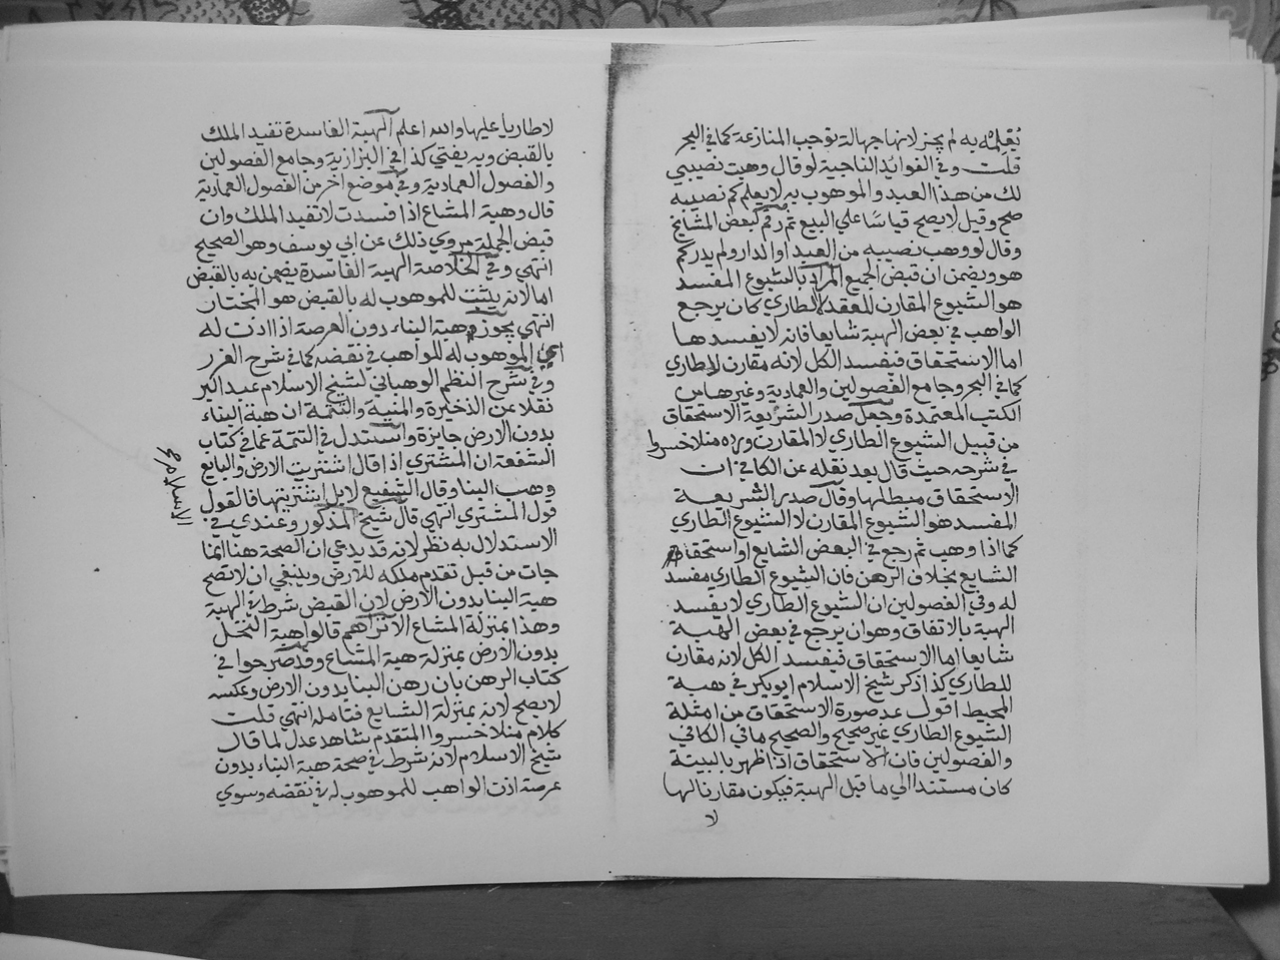 يعلمه به لم يجز لانها جهالة توجب المنازعة كما في البحر
قلت وفي الفوائد التاجية لو قال وهبت نصيبي
لك من هذا العبد والموهوب به لا يعلم كم نصيبه
صح وقيل لا يصح قياسا علي البيع ثم رقم لبعض المشايخ
وقال لو وهب نصيبه من العبد او الدار ولم يدر كم
هو ويضمن ان قبض الجميع المراد بالشيوع المفسد
هو الشيوع المقارن للعقد لا الطاري كان يرجع
الواهب في بعض الهبة شايعا فانه لا يفسدها
اما الاستحقاق فيفسد الكل لانه مقارن لا طاري
كما في البحر وجامع الفصولين والعمادية وغيرها من
الكتب المعتمدة وجعل صدر الشريعة الاستحقاق
من قبيل الشيوع الطاري لا المقارن ورده منلا خسروا
في شرحه حيث قال بعد نقله عن الكافي ان
الاستحقاق مبطل لها وقال صدر الشريعة
المفسد هو الشيوع المقارن لا الشيوع الطاري
كما اذا وهب ثم رجع في البعض الشايع او استحقاق
الشايع بخلاف الرهن فان الشيوع الطاري مفسد
له وفي الفصولين ان الشيوع الطاري لا يفسد
الهبة بالاتفاق وهو ان يرجع في بعض الهبة
شايعا اما الاستحقاق فيفسد الكل لانه مقارن
للطاري كذا ذكر شيخ الاسلام ابو بكر في هبة
المحيط اقول عد صورة الاستحقاق من امثلة
الشيوع الطاري غير صحيح والصحيح ما في الكافي
والفصولين فان الاستحقاق اذا ظهر بالبينة
كان مستندا الي ما قبل الهبة فيكون مقارنا لها
لا
لا طاريا عليها والله اعلم الهبة الفاسدة تفيد الملك
بالقبض وبه يفتي كذا في البزازية وجامع الفصولين
والفصول العمادية وفي موضع اخر من الفصول العمادية
قال وهبة المشاع اذا فسدت لا تفيد الملك وان
قبض الجملة مروي ذلك عن ابي يوسف وهو الصحيح
انتهي وفي الخلاصة الهبة الفاسدة يضمن به بالقبض
اما لانه يثبت للموهوب له بالقبض هو المختار
انتهي يجوز هبة البناء دون العرصة اذا اذنت له
اي الموهوب له للواهب في نقضه كما في شرح الغرر
وفي شرح النظم الوهباني لشيخ الاسلام عبد البر
نقلا عن الذخيرة والمنية والتتمة ان هبة البناء
بدون الارض جايزة واستدل في التتمة عما في كتاب
الشفعة ان المشتري اذا قال اشتريت الارض والبايع
وهب البنا وقال الشفيع لا بل اشتريتها فالقول
قول المشتري انتهي قال شيخ المذكور وعندي في
الاسلام صح
الاستدلال به نظر لانه قد يدعي ان الصحة هنا انما
جات من قبل تقدم ملكه للارض وينبغي ان لا تصح
هبة البنا بدون الارض لان القبض شرط في الهبة
وهذا بمنزلة المشاع الا تراهم قالوا هبة النخل
بدون الارض بمنزلة هبة المشاع وقد صرحوا في
كتاب الرهن بان رهن البنا بدون الارض وعكسه
لا يصح لانه بمنزلة الشايع فتامله انتهي قلت
كلام منلا خسروا المتقدم شاهد عدل لما قال
شيخ الاسلام لانه شرط في صحة هبة البناء بدون
عرصة اذن الواهب للموهوب له في نقضه وسوي